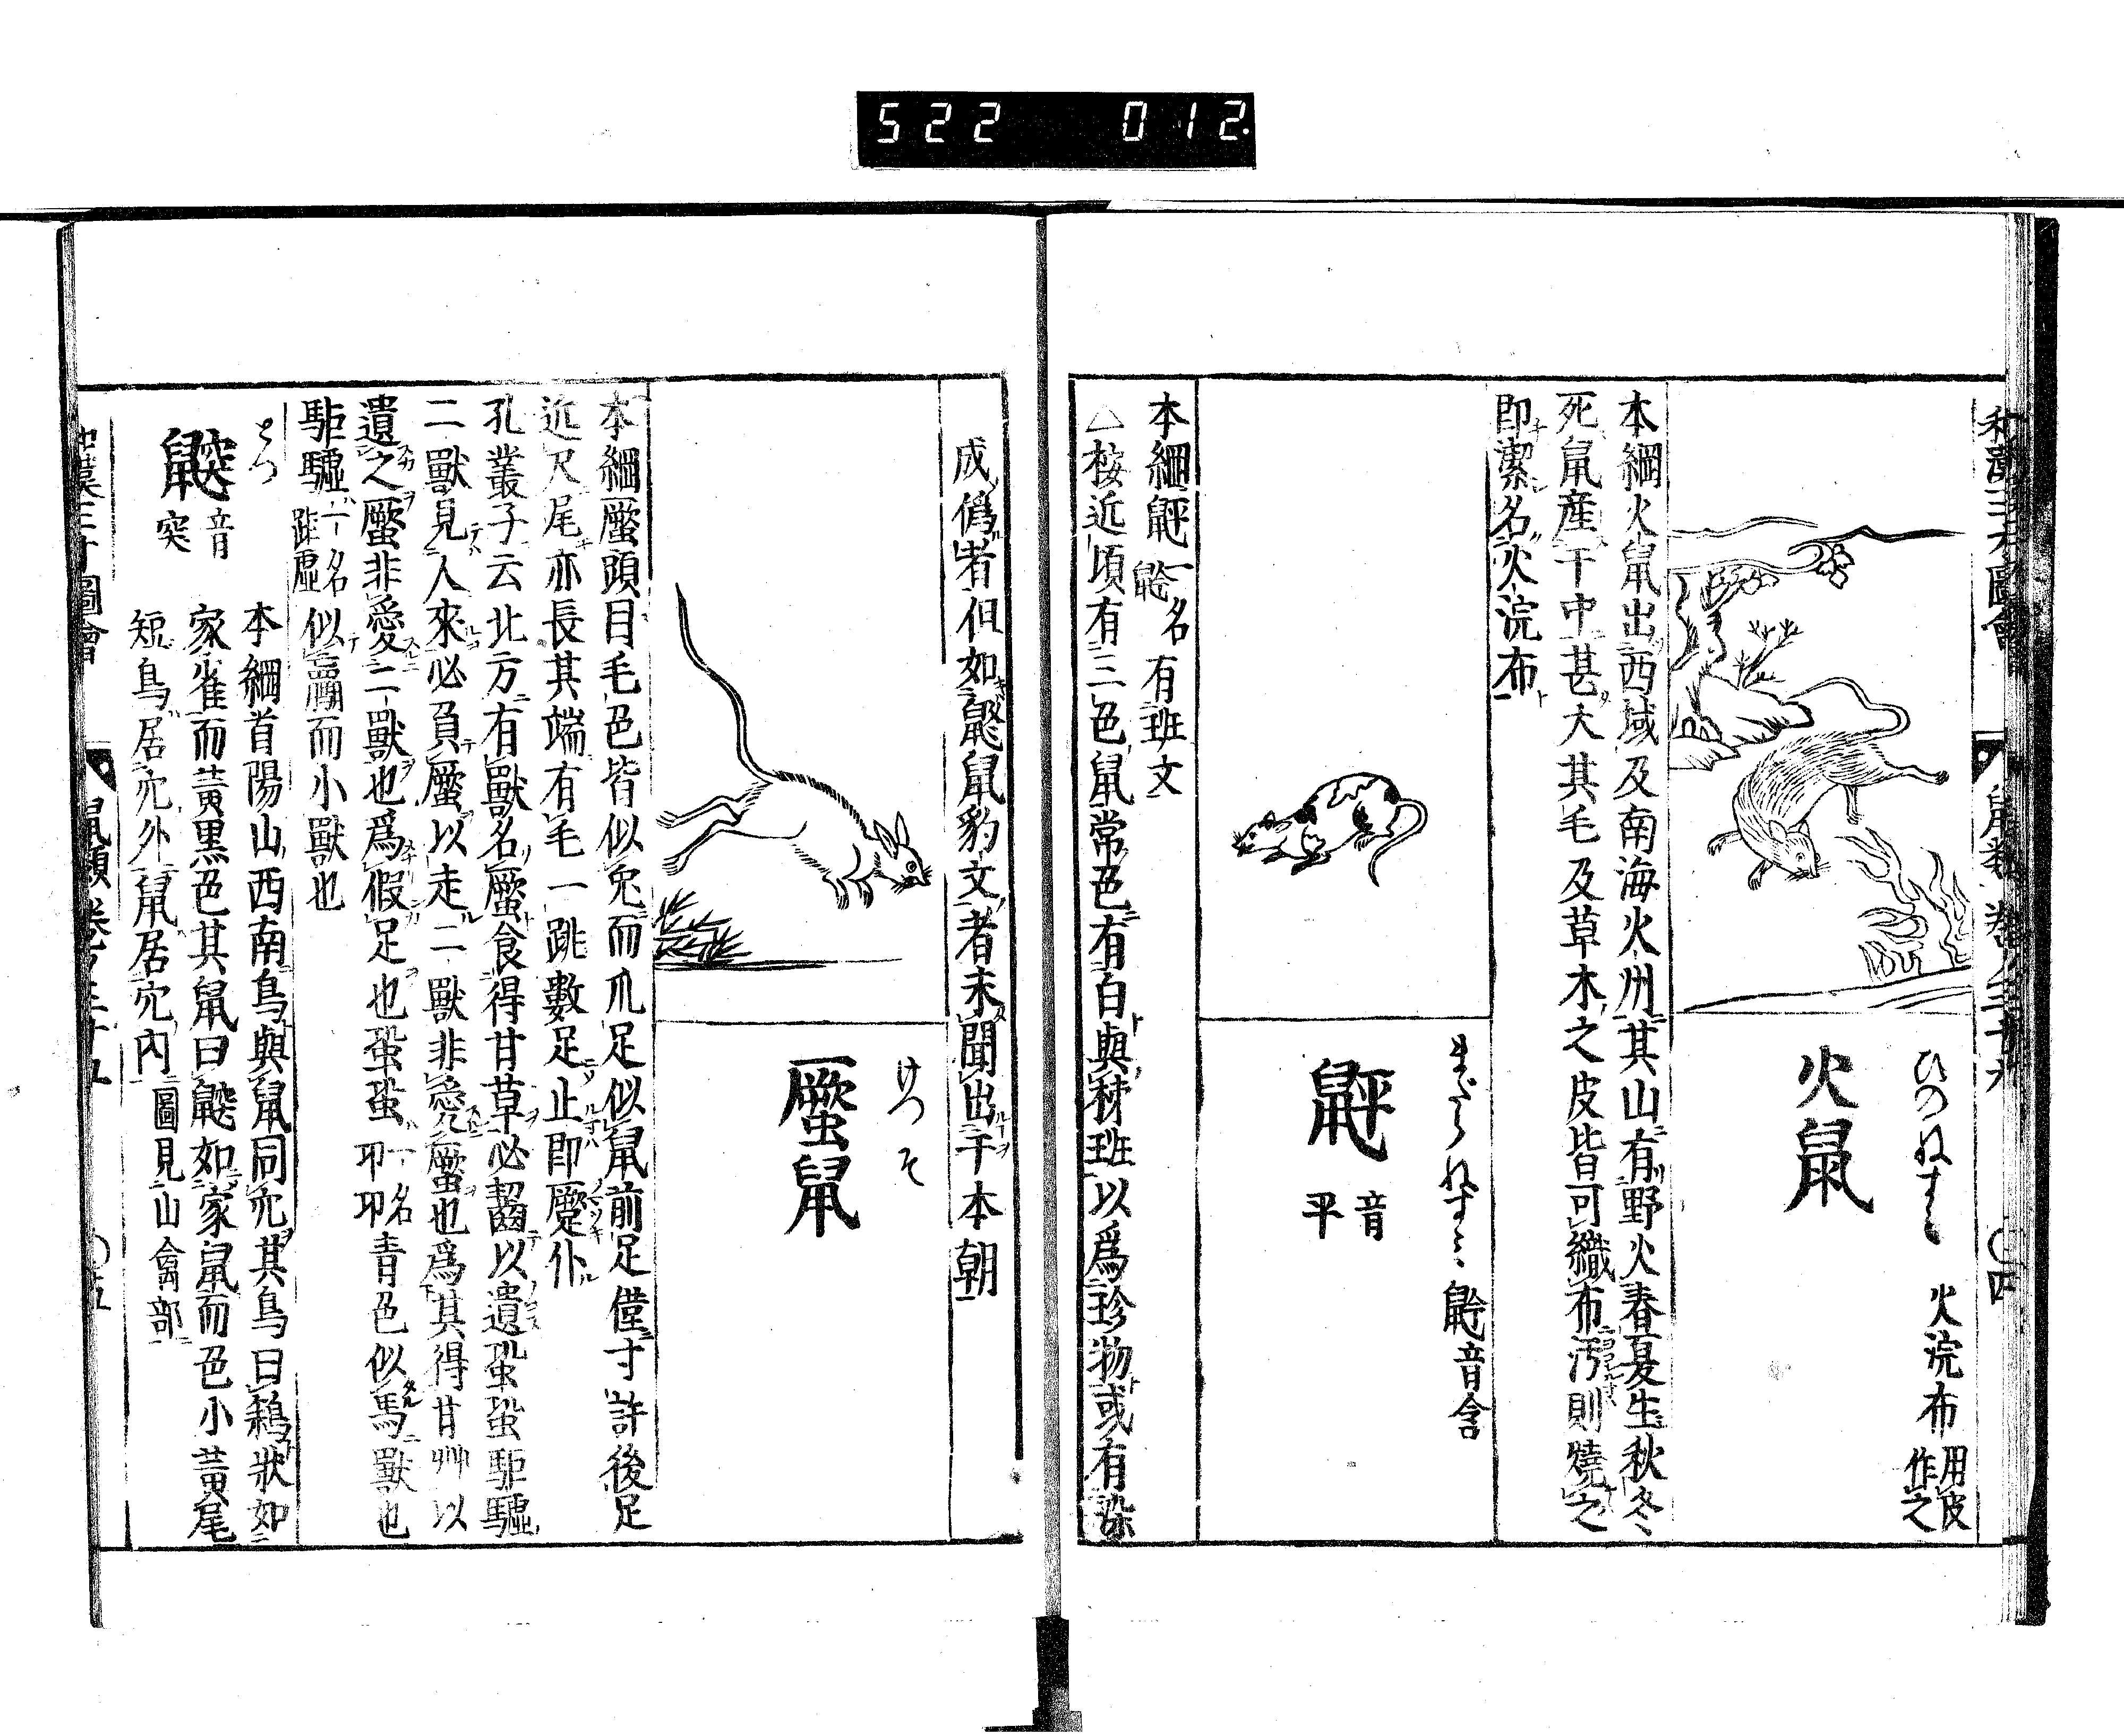 522 012.
和漢三才圖會
鼠類 卷ノ三十九
〇四
ひのねすみ
火鼠
火浣布
用皮
作之
本綱火鼠出西域及南海火州其山有野火春夏生秋冬
死鼠産于中甚大其毛及草木之皮皆可織布汚則燒之
即潔名火浣布
まだらねずみ
鼮
音
平
鼯音含
本綱鼮一名
有班文
△按近頃有三色鼠常色有白與秣班以爲珍物或有染
成僞者但如鼨鼠豹文者未聞出于本朝
けつそ
蟨鼠
本綱蟨頭目毛色皆似兔而爪足似鼠前足僅寸許後足
近尺尾亦長其端有毛一跳數足止即蟨仆
孔叢子云北方有獸名蟨食得甘草必齧以遺蛩蛩駏驉
二獸見人來必負蟨以走二獸非愛蟨也爲其得甘艸以
遺之蟨非愛二獸也爲假足也蛩蛩
一名
卭卭
青色似馬獸也
駏驉
一名
岠虛
似騾而小獸也
とつ
鼵
音
突
本綱首陽山西南鳥與鼠同穴其鳥曰鵌狀如
家雀而黃黒色其鼠曰鼵如家鼠而色小黃尾
短鳥居穴外鼠居穴內
圖見山禽部
和漢三才圖會
鼠類 卷ノ三十九
〇五